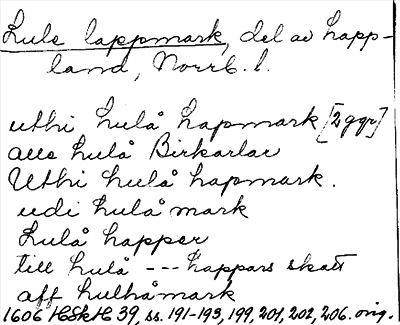 Lule lappmark, del av Lapp-
land, Norrb. l.
uthi Lulå Lapmark [2ggr]
alle Lulå Birkarlar
Uthi Lulå Lapmark.
udi Lulå mark
Lulå Lapper
till Lulå --- Lappars skatt
aff Lulhåmark
1606 HSkH 39, ss. 191-193, 199, 201, 202, 206. orig.